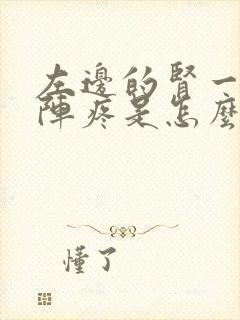 左邊的腎一
陣疼是怎麼
懂了